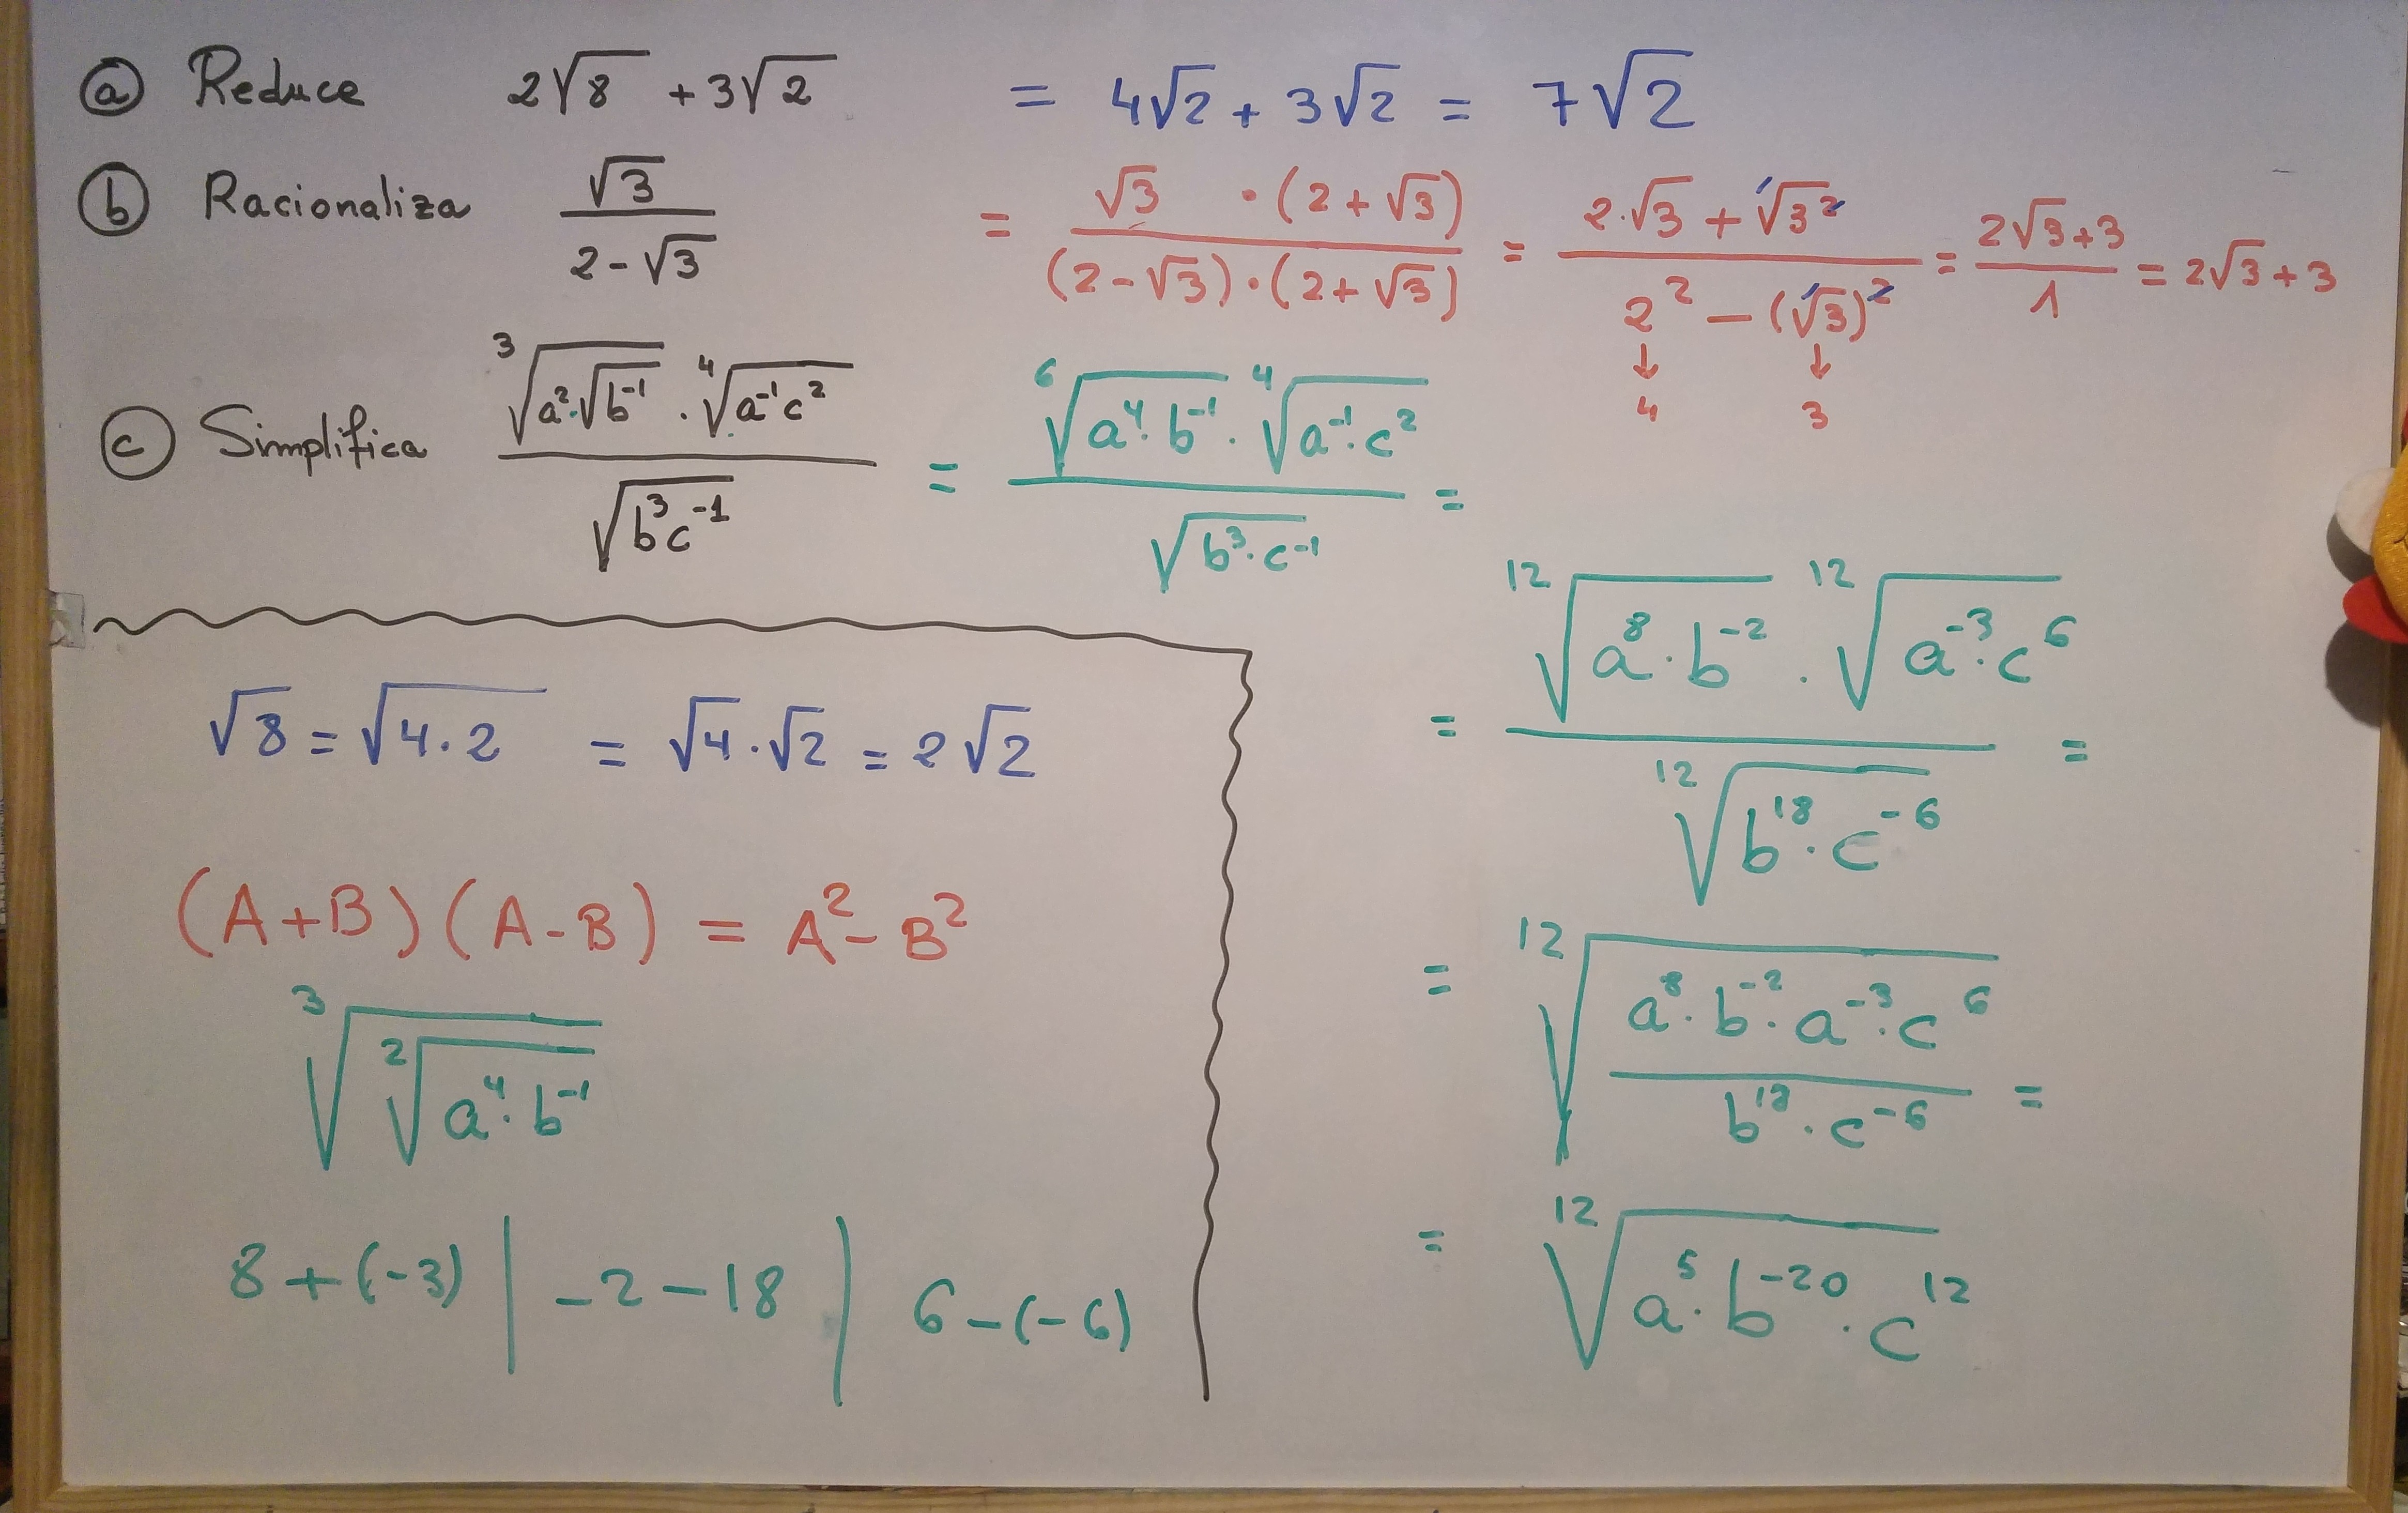 ⓐ Reduce 2√8 + 3√2 = 4√2 + 3√2 = 7√2
ⓑ Racionaliza √3/(2-√3) = (√3 · (2+√3))/((2-√3)·(2+√3)) = (2·√3 + √3²)/(2² - (√3)²) = (2√3+3)/1 = 2√3+3
↓ ↓
4 3
ⓒ Simplifica (∛(a²·√(b⁻¹)) · ∜(a⁻¹c²))/√(b³c⁻¹) = (⁶√(a⁴·b⁻¹) · ∜(a⁻¹·c²))/√(b³·c⁻¹) =
= (¹²√(a⁸·b⁻²) · ¹²√(a⁻³·c⁶))/¹²√(b¹⁸·c⁻⁶) =
= ¹²√((a⁸·b⁻²·a⁻³·c⁶)/(b¹⁸·c⁻⁶)) =
= ¹²√(a⁵·b⁻²⁰·c¹²)
√8 = √(4·2) = √4·√2 = 2√2
(A+B)(A-B) = A²-B²
³√(²√(a⁴·b⁻¹))
8+(-3) | -2-18 | 6-(-6)